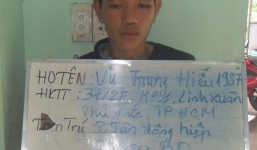 HỌ TÊN: Vũ Trung Hiếu 1987
HKTT: 37/2F, KP4, Linh Xuân
Thủ Đức, TP HCM
Tạm Trú: P Tân Đông Hiệp
BD